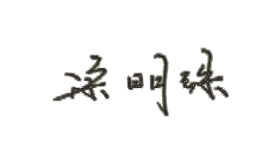 梁明珠